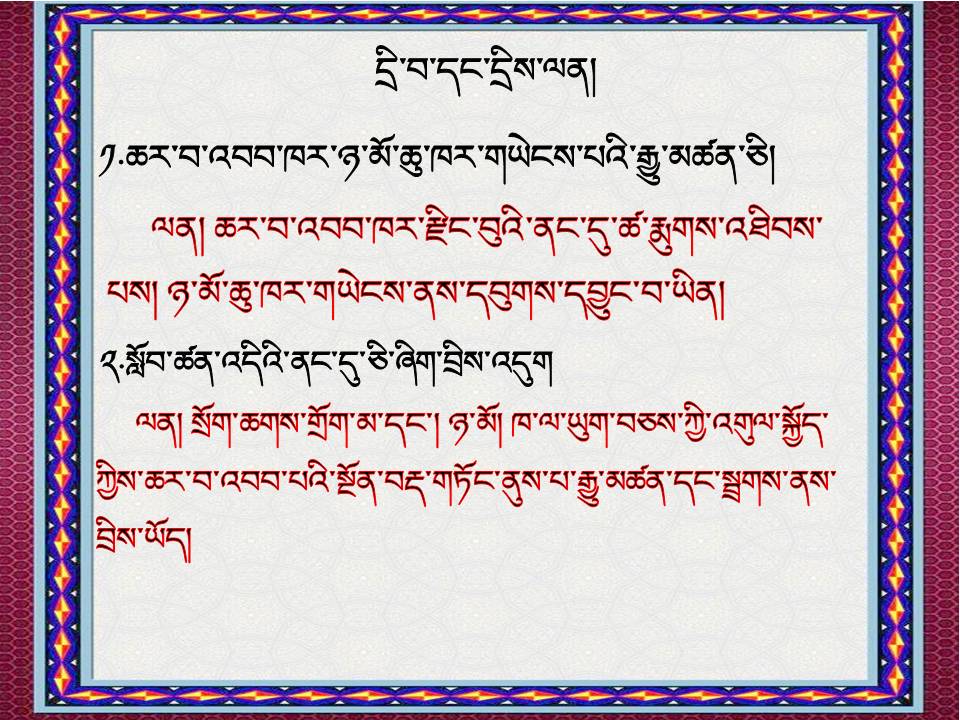 དྲི་བ་དང་དྲིས་ལན།
༡.ཆར་བ་འབབ་ཁར་ཉ་མོ་ཆུ་ཁར་གཡེངས་པའི་རྒྱུ་མཚན་ཅི།
ལན། ཆར་བ་འབབ་ཁར་རྫིང་བུའི་ནང་དུ་ཚ་རླུགས་འཐིབས་
པས། ཉ་མོ་ཆུ་ཁར་གཡེངས་ནས་དབུགས་དབྱུང་བ་ཡིན།
༢.སློབ་ཚན་འདིའི་ནང་དུ་ཅི་ཞིག་བྲིས་འདུག
ལན། སྲོག་ཆགས་གྲོག་མ་དང་། ཉ་མོ། ཁ་ལ་ཡུག་བཅས་ཀྱི་འགུལ་སྐྱོད་
ཀྱིས་ཆར་བ་འབབ་པའི་སྔོན་བརྡ་གཏོང་ནུས་པ་རྒྱུ་མཚན་དང་སྦྲགས་ནས་
བྲིས་ཡོད།